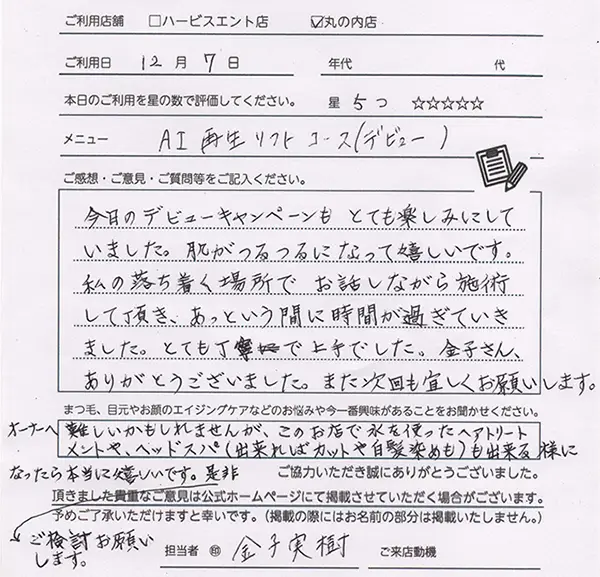 ご利用店舗 □ハービスエント店 ☑丸の内店
ご利用日 12月 7日 年代 代
本日のご利用を星の数で評価してください。 星 5つ ☆☆☆☆☆
メニュー AI再生リフトコース(デビュー)
ご感想・ご意見・ご質問等をご記入ください。
今日のデビューキャンペーンも とても楽しみにして
いました。肌がつるつるになって嬉しいです。
私の落ち着く場所で お話しながら施術
して頂き、あっという間に時間が過ぎていき
ました。とても丁寧で上手でした。金子さん、
ありがとうございました。また次回も宜しくお願いします。
まつ毛、目元やお顔のエイジングケアなどのお悩みや今一番興味があることをお聞かせください。
オーナーへ 難しいかもしれませんが、このお店で水を使ったヘアトリート
メントや、ヘッドスパ(出来ればカットや白髪染めも)も出来る様に
なったら本当に嬉しいです。是非 ご協力いただき誠にありがとうございました。
頂きました貴重なご意見は公式ホームページにて掲載させていただく場合がございます。
予めご了承いただけますと幸いです。(掲載の際にはお名前の部分は掲載いたしません。)
ご検討お願い
します。
担当者 ㊞ 金子実樹 ご来店動機